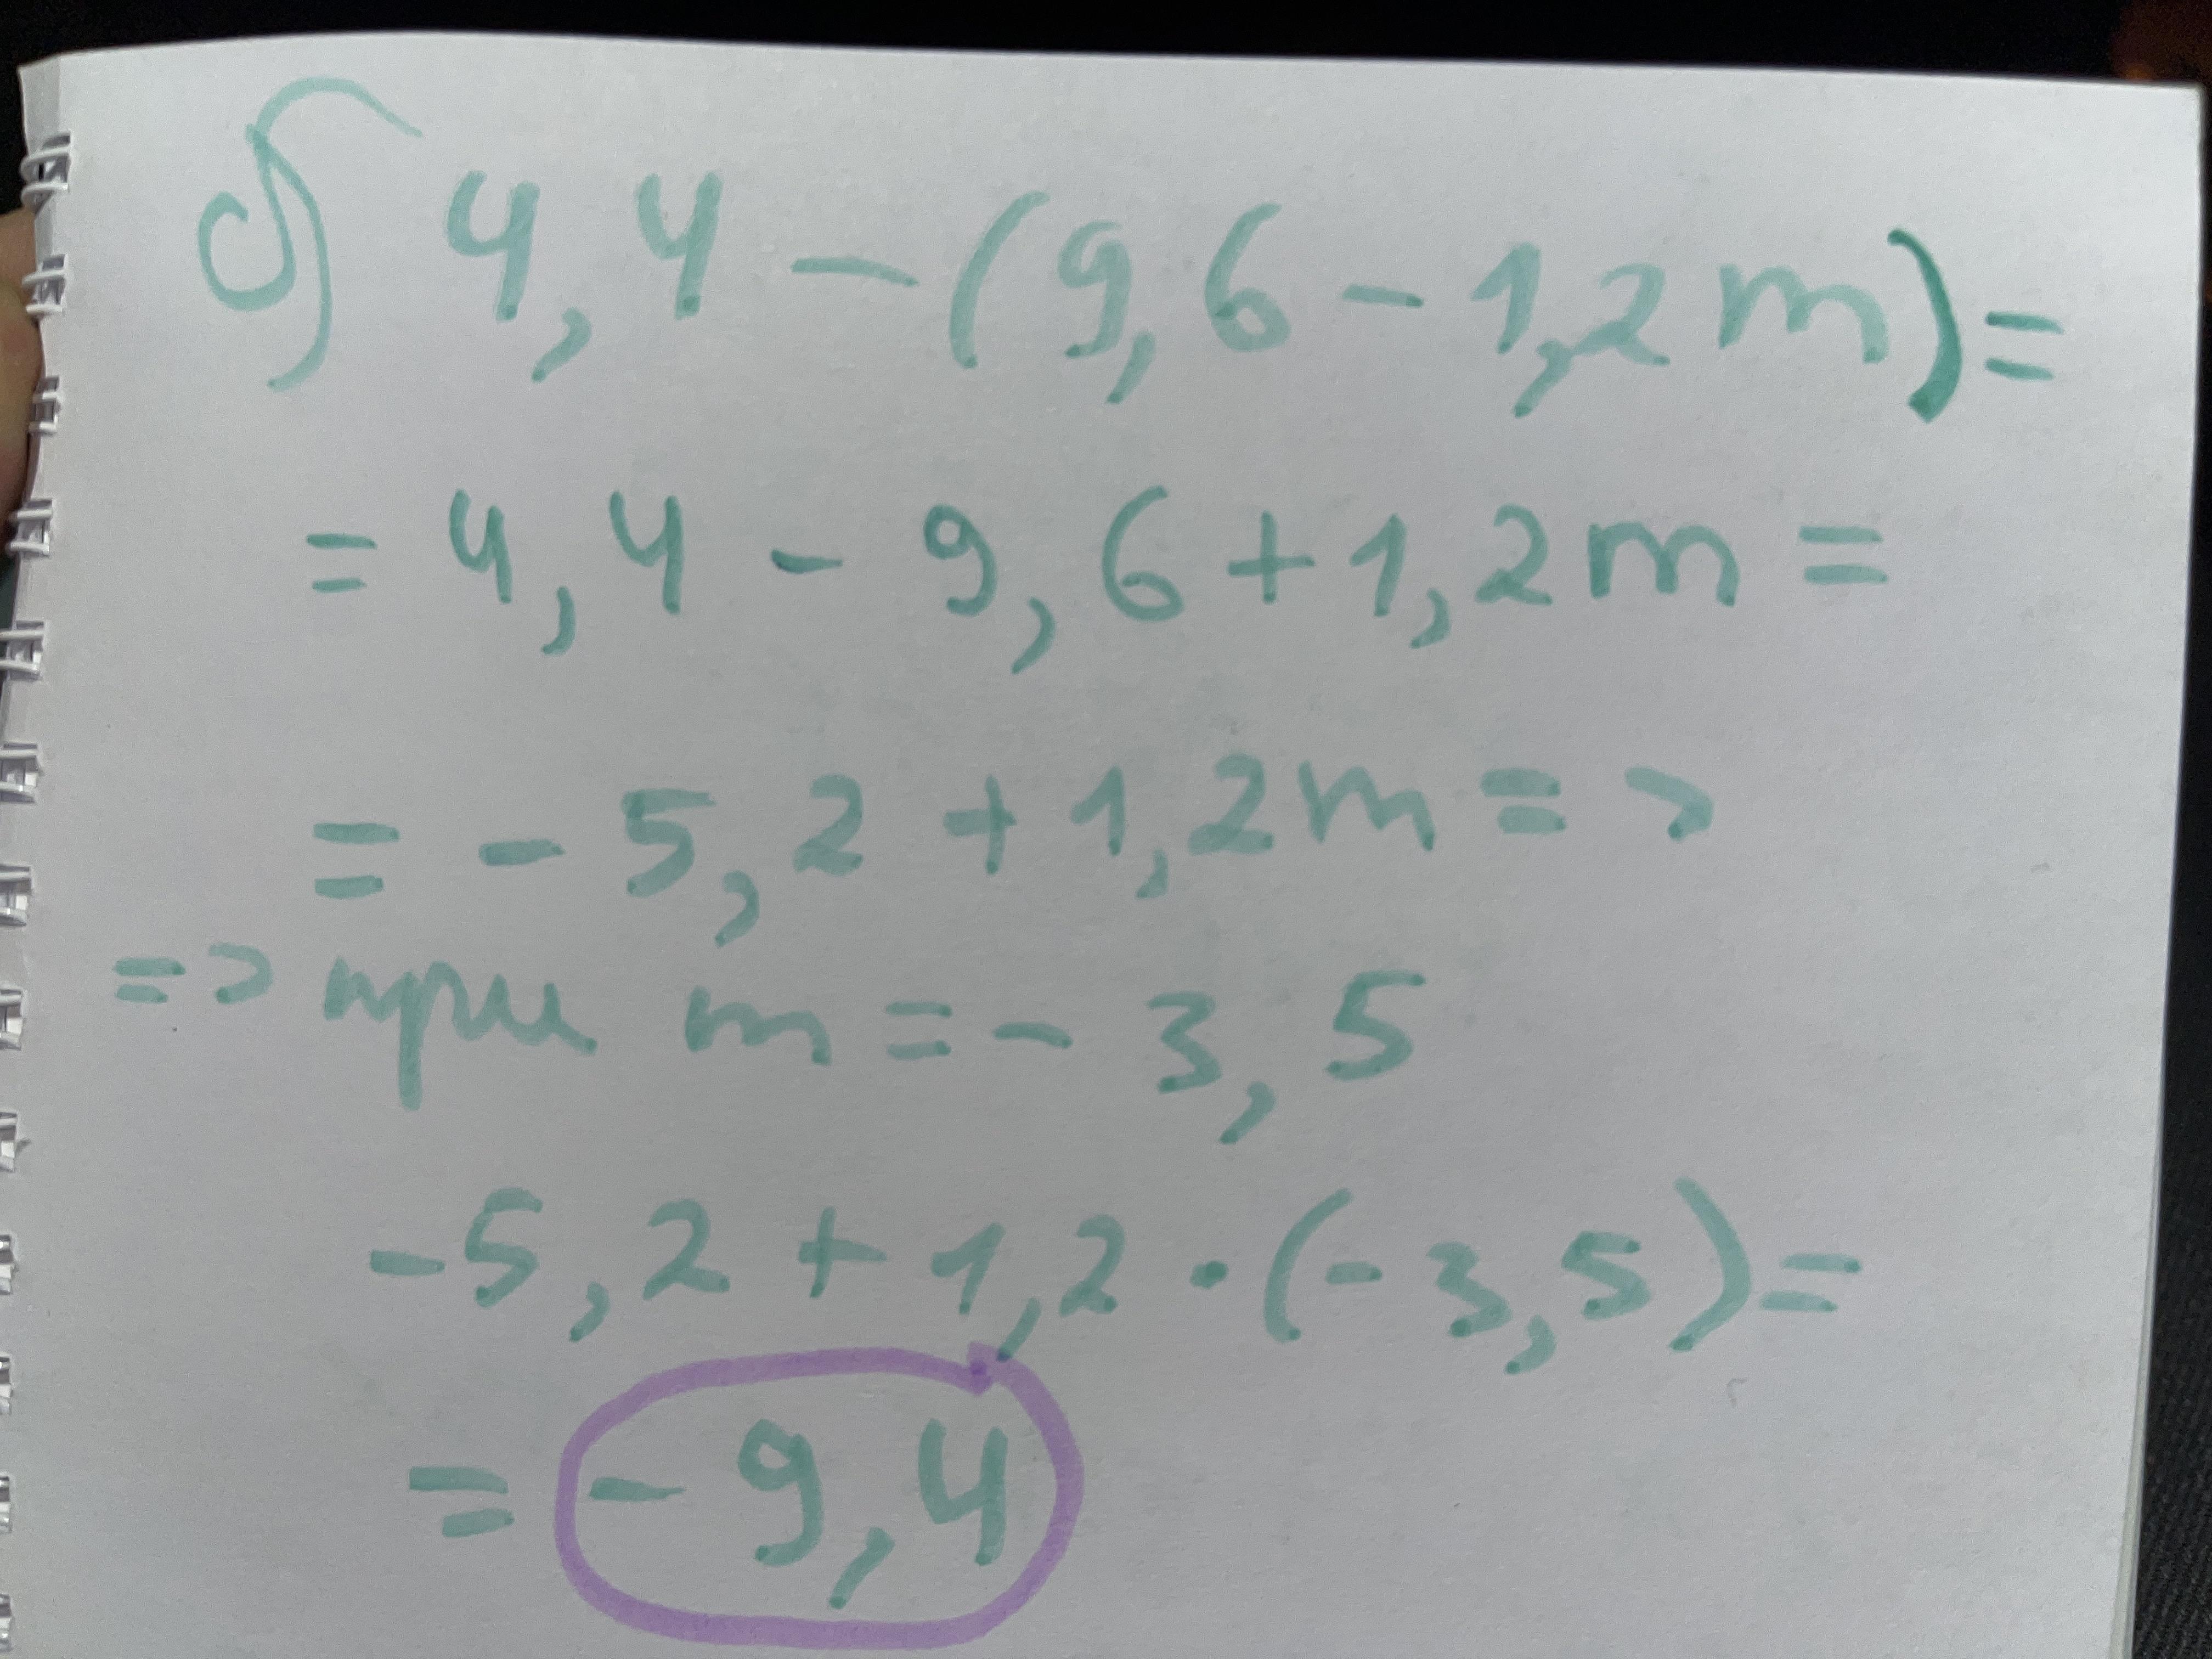 б) 4,4 - (9,6 - 1,2m) =
= 4,4 - 9,6 + 1,2m =
= - 5,2 + 1,2m = >
=> при m = - 3,5
-5,2 + 1,2 · (- 3,5) =
= - 9,4